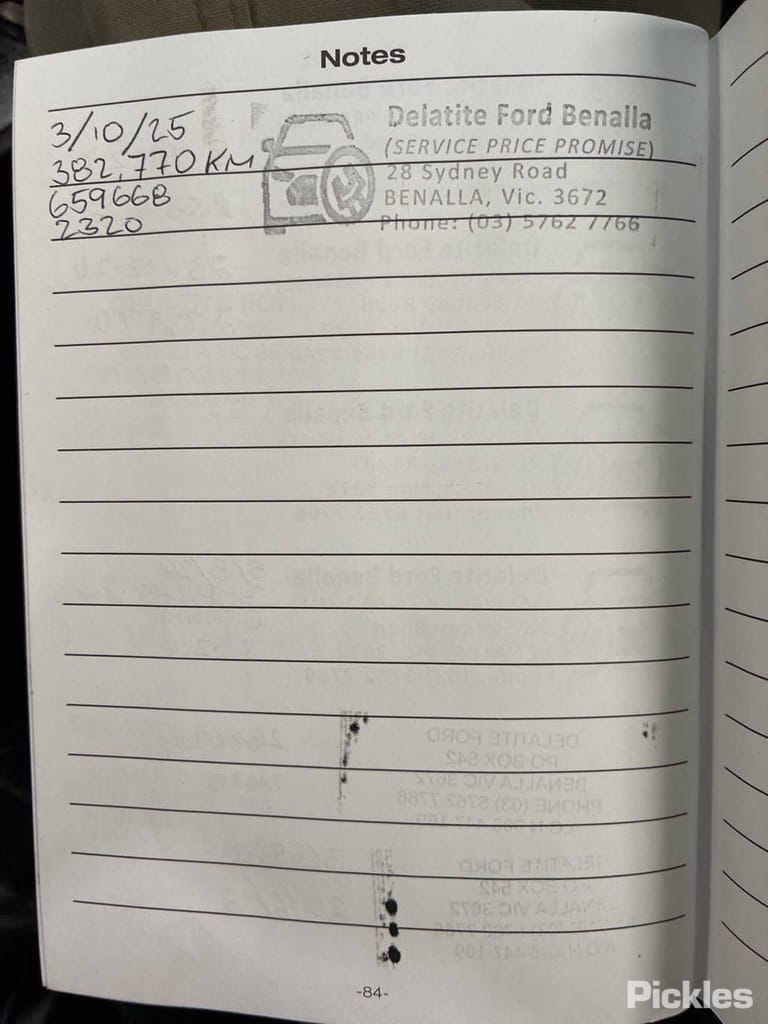 Notes
3/10/25
382,770 KM
659668
2320
Delatite Ford Benalla
(SERVICE PRICE PROMISE)
28 Sydney Road
BENALLA, Vic. 3672
Phone: (03) 5762 7766
-84-
Pickles